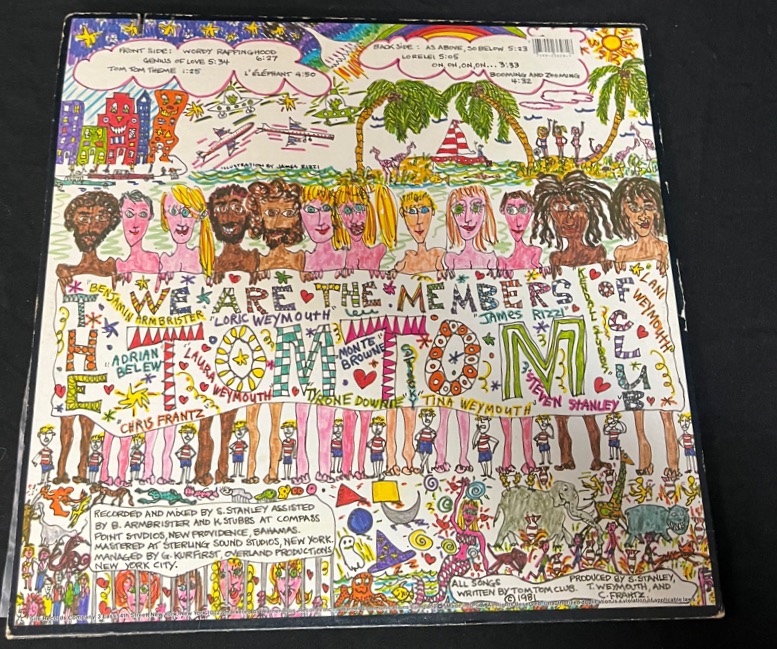 FRONT SIDE: WORDY RAPPINGHOOD 6:27
GENIUS OF LOVE 5:34
TOM TOM THEME 1:25 L'ÉLÉPHANT 4:50
BACK SIDE: AS ABOVE, SO BELOW 5:23
LORELEI 5:05
ON, ON, ON, ON... 3:33
BOOMING AND ZOOMING 4:32
ILLUSTRATION BY JAMES RIZZI
WE ARE THE MEMBERS OF
THE TOM TOM CLUB
BENJAMIN ARMBRISTER
"LORIC WEYMOUTH"
JAMES RIZZI
KENDALL STUBBS
LANI WEYMOUTH
"ADRIAN BELEW"
"LAURA WEYMOUTH"
MONTE BROWNE
"TYRONE DOWNIE"
TINA WEYMOUTH
STEVEN STANLEY
CHRIS FRANTZ
RECORDED AND MIXED BY S. STANLEY ASSISTED
BY B. ARMBRISTER AND K. STUBBS AT COMPASS
POINT STUDIOS, NEW PROVIDENCE, BAHAMAS.
MASTERED AT STERLING SOUND STUDIOS, NEW YORK.
MANAGED BY G. KURFIRST, OVERLAND PRODUCTIONS
NEW YORK CITY.
ALL SONGS
WRITTEN BY TOM TOM CLUB.
© 1981
PRODUCED BY S. STANLEY,
T. WEYMOUTH, AND
C. FRANTZ